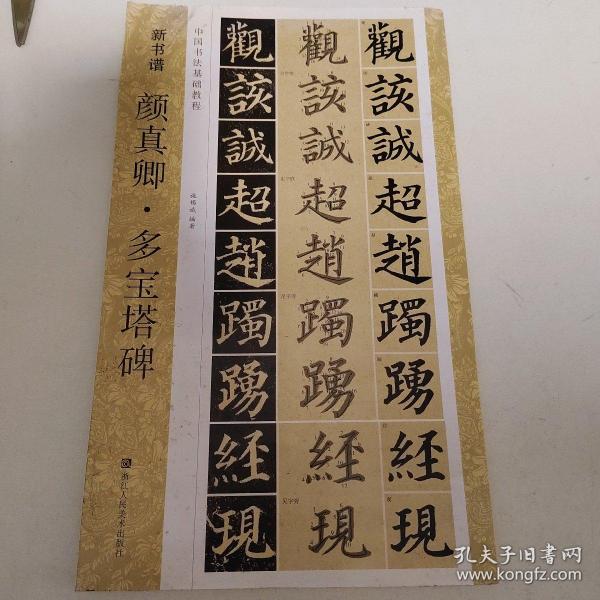 新书谱
颜真卿·多宝塔碑
浙江人民美术出版社
中国书法基础教程
觀 觀 觀
該 該 該
誠 誠 誠
超 超 超
趙 趙 趙
躅 躅 躅
踴 踴 踴
經 經 經
現 現 現
孔夫子旧书网
www.kongfz.com